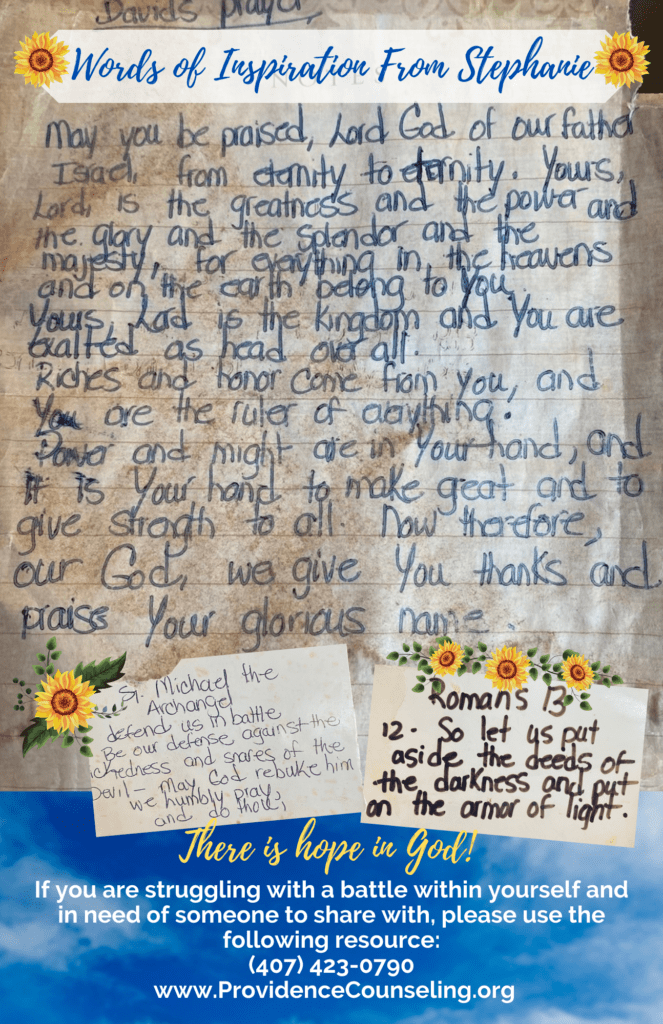 David's prayer,
Words of Inspiration From Stephanie
NOTES
May you be praised, Lord God of our father
Israel, from eternity to eternity. Yours,
Lord, is the greatness and the power and
the glory and the splendor and the
majesty, for everything in the heavens
and on the earth belong to You.
Yours, Lord is the kingdom and You are
exalted as head over all.
Riches and honor come from you, and
You are the ruler of everything.
Power and might are in Your hand, and
it is Your hand to make great and to
give strength to all. Now therefore,
our God, we give You thanks and
praise Your glorious name.
St. Michael the
Archangel
defend us in battle
Be our defense against the
ickedness and snares of the
Devil - May God rebuke him
we humbly pray,
and do thou,
Roman's 13
12. So let us put
aside the deeds of
the darkness and put
on the armor of light.
There is hope in God!
If you are struggling with a battle within yourself and
in need of someone to share with, please use the
following resource:
(407) 423-0790
www.ProvidenceCounseling.org